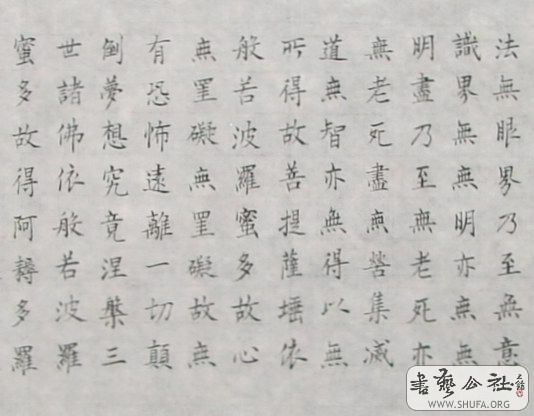 法無眼界乃至無意
識界無無明亦無無
明盡乃至無老死亦
無老死盡無苦集滅
道無智亦無得以無
所得故菩提薩埵依
般若波羅蜜多故心
無罣礙無罣礙故無
有恐怖遠離一切顛
倒夢想究竟涅槃三
世諸佛依般若波羅
蜜多故得阿耨多羅
書藝公社
WWW.SHUFA.ORG